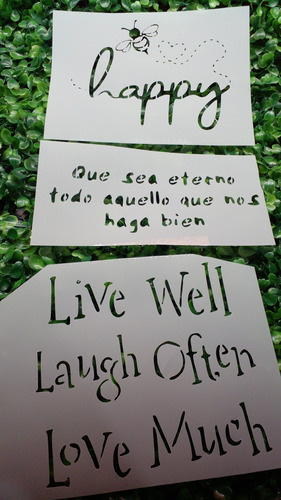 happy
Que sea eterno
todo aquello que nos
haga bien
Live Well
Laugh Often
Love Much